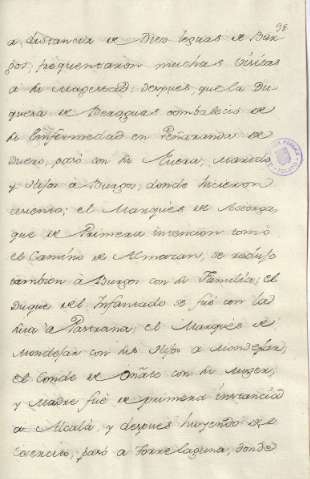 98
a distancia de Diez leguas de Bur
gos, frequentaron muchas Visitas
a su Magestad; despues, que la Du
quesa de Veraguas combaleció de
su Enfermedad en Peñaranda de
Duero, pasó con su Nuera, Marido,
y Nifos à Burgos, donde hicieron
asiento; el Marques de Astorga,
que de Primera intencion tomó
el Camino de Almazan, se reduso
tambien à Burgos con su Familia; el
Duque del Infantado se fué con la
suia a Pastrana; el Marques de
Mondejar con sus Hijos a Mondejar,
el Conde de Oñate con su Muger,
y Madre fué de primera instancia
a Alcalà, y despues huyendo del
Exercito, pasó a Torrelaguna, donde